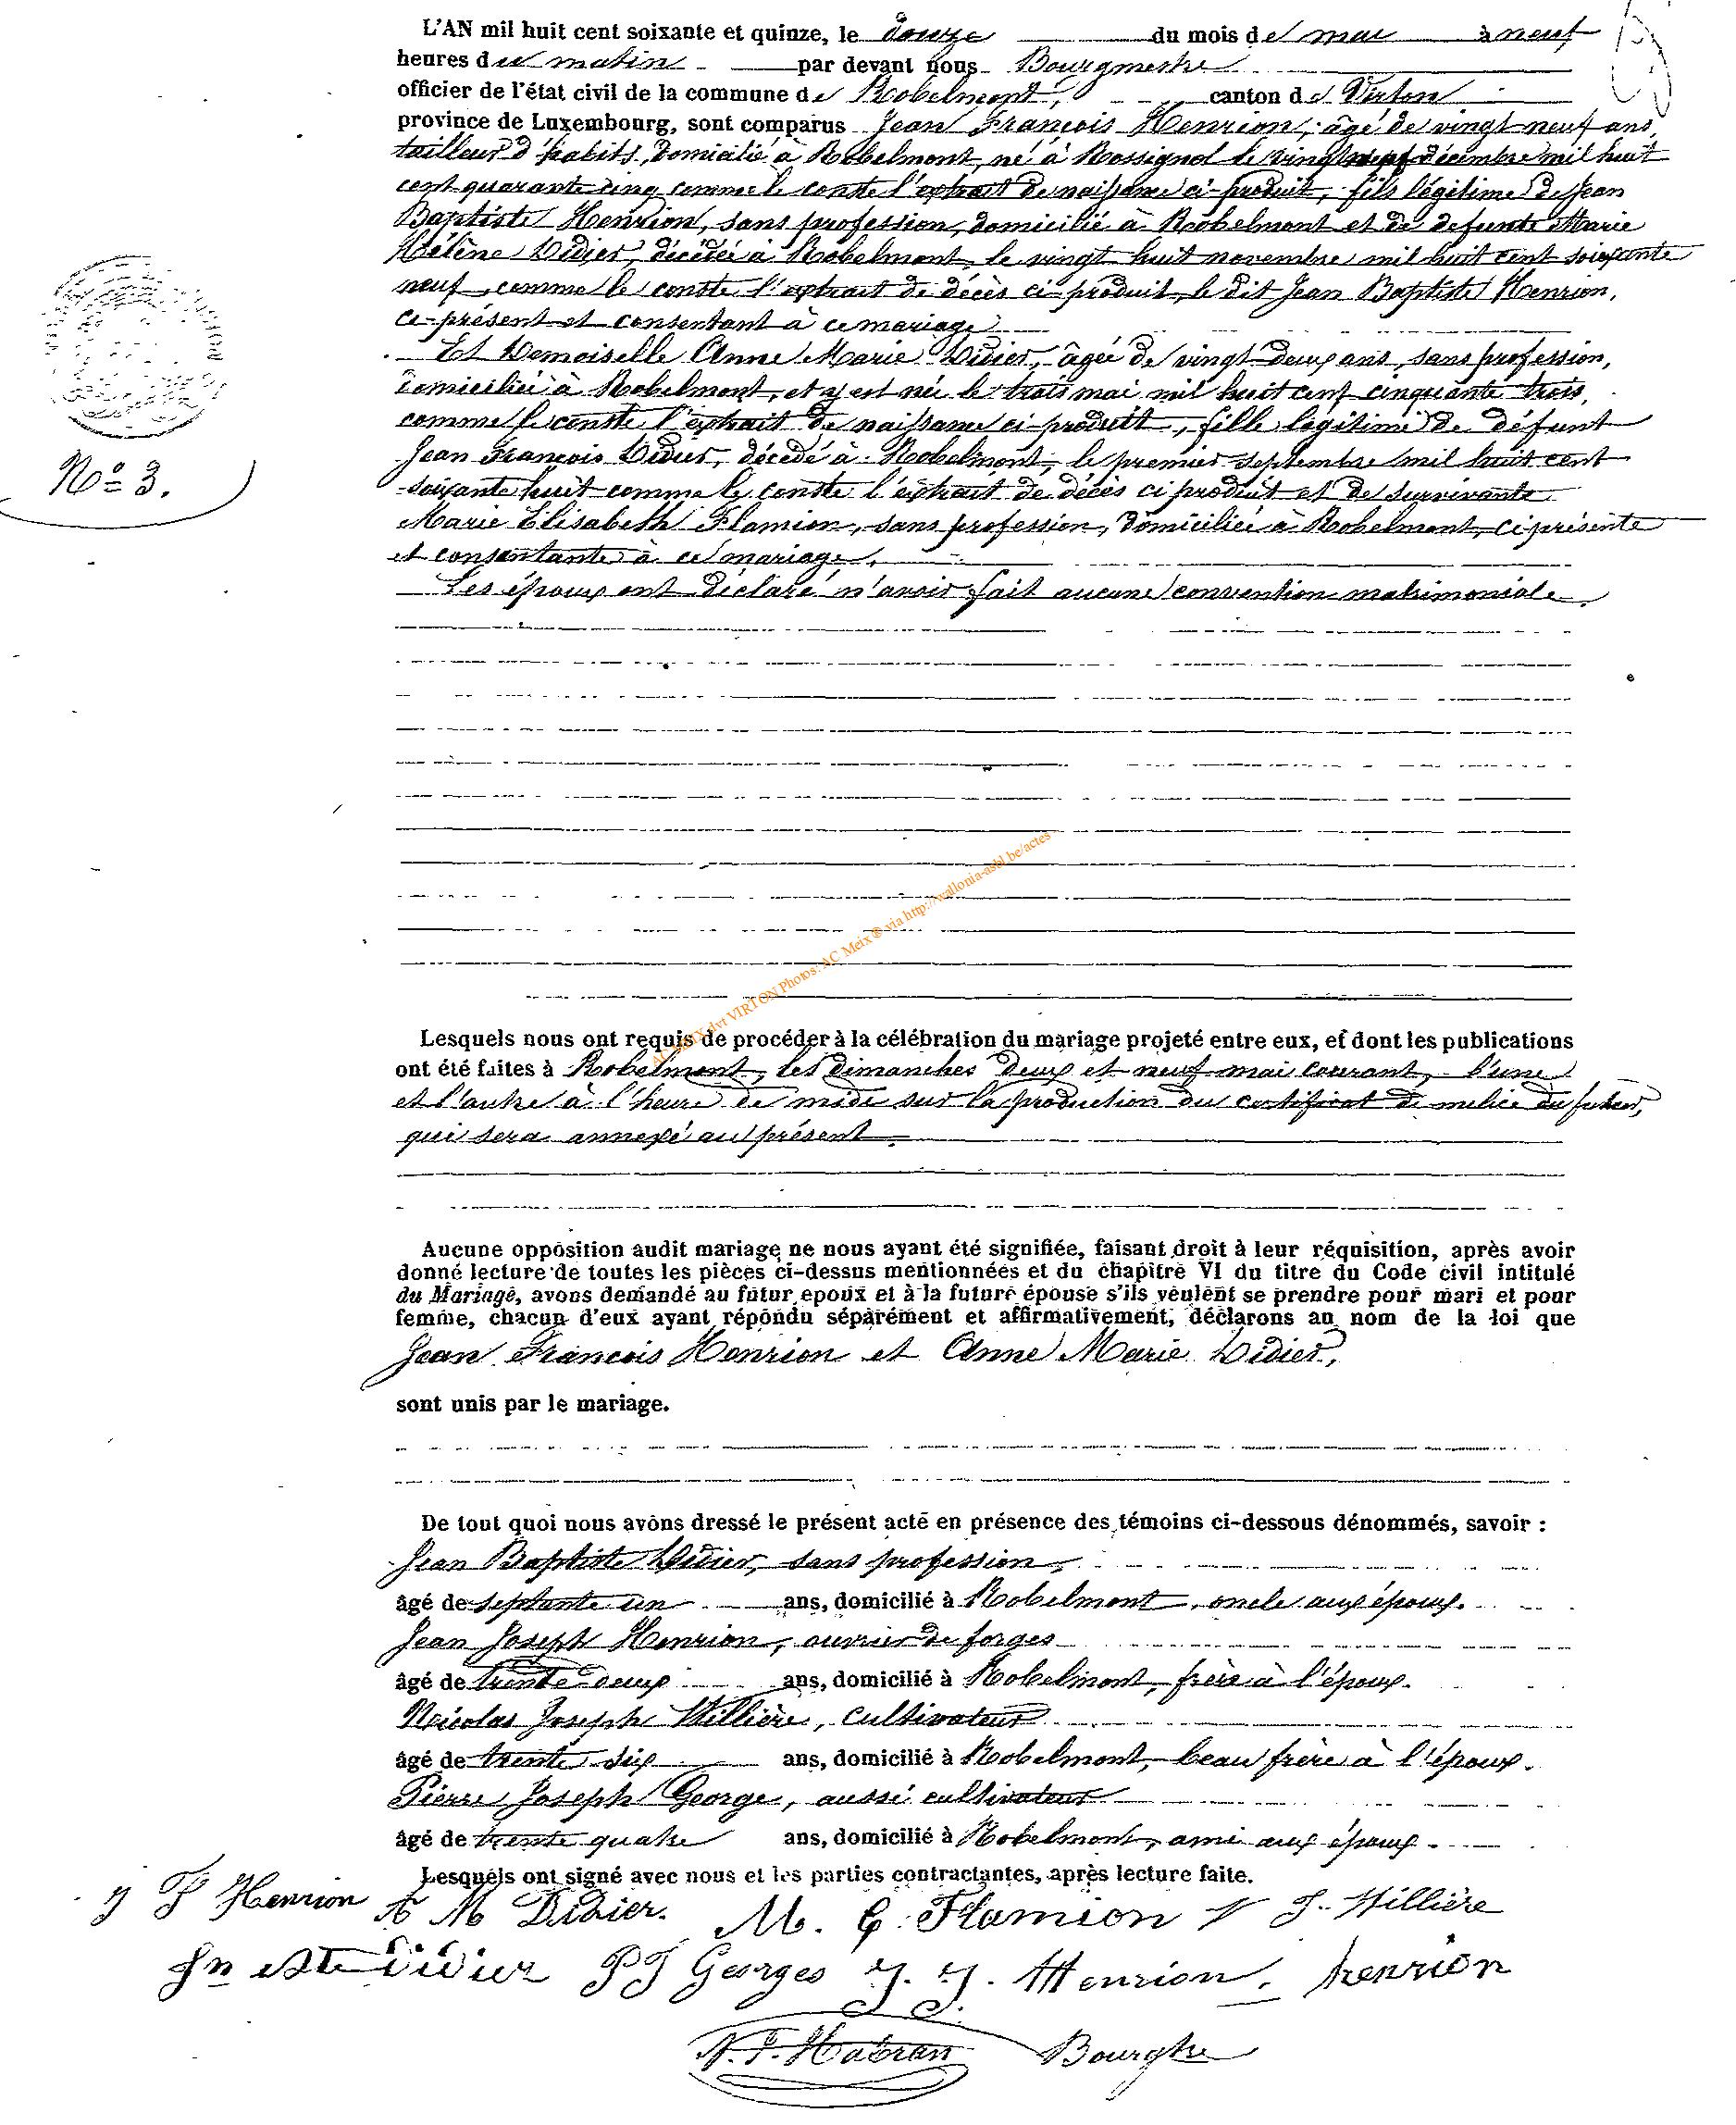 L'AN mil huit cent soixante et quinze, le douze du mois de mai à neuf
heures du matin par devant nous Bourgmestre
officier de l'état civil de la commune de Robelmont, canton de Virton
province de Luxembourg, sont comparus Jean François Henrion, âgé de vingt-neuf ans,
tailleur d'habits, domicilié à Robelmont, né à Rossignol le vingt neuf décembre mil huit
cent quarante cinq comme le conste l'extrait de naissance ci-produit, fils légitime de Jean
Baptiste Henrion, sans profession, domicilié à Robelmont et de defunte Marie
Hélène Didier, décédée à Robelmont, le vingt huit novembre mil huit cent soixante
neuf, comme le conste l'extrait de décès ci-produit, le dit Jean Baptiste Henrion,
ce-présent et consentant à ce mariage
Et Demoiselle Anne Marie Didier, âgée de vingt-deux ans, sans profession,
domiciliée à Robelmont, et y est née le trois mai mil huit cent cinquante trois,
comme le conste l'extrait de naissance ci-produit, fille légitime de défunt
Jean François Didier, décédé à Robelmont, le premier septembre mil huit cent
soixante huit comme le conste l'extrait de décès ci produit et de survivante
Marie Elisabeth Flamion, sans profession, domiciliée à Robelmont, ci présente
et consentante à ce mariage.
N° 3.
Les époux ont déclaré n'avoir fait aucune convention matrimoniale.
AC MEIX dvt VIRTON Photos: AC Meix ® via http://wallonia-asbl.be/actes
Lesquels nous ont requis de procéder à la célébration du mariage projeté entre eux, et dont les publications
ont été faites à Robelmont, les dimanches deux et neuf mai courant, l'une
et l'autre à l'heure de midi sur la production du certificat de milice du futur,
qui sera annexé au présent
Aucune opposition audit mariage ne nous ayant été signifiée, faisant droit à leur réquisition, après avoir
donné lecture de toutes les pièces ci-dessus mentionnées et du chapitre VI du titre du Code civil intitulé
du Mariage, avons demandé au futur epoux et à la future épouse s'ils veulent se prendre pour mari et pour
femme, chacun d'eux ayant répondu séparément et affirmativement, déclarons au nom de la loi que
Jean François Henrion et Anne Marie Didier,
sont unis par le mariage.
De tout quoi nous avons dressé le présent acte en présence des témoins ci-dessous dénommés, savoir :
Jean Baptiste Didier, sans profession,
âgé de septante un ans, domicilié à Robelmont, oncle aux époux.
Jean Joseph Henrion, ouvrier de forges
âgé de trente deux ans, domicilié à Robelmont, frère à l'époux.
Nicolas Joseph Willière, cultivateur
âgé de trente six ans, domicilié à Robelmont, beau frère à l'époux.
Pierre Joseph George, aussi cultivateur
âgé de trente quatre ans, domicilié à Robelmont, ami aux époux.
Lesquels ont signé avec nous et les parties contractantes, après lecture faite.
J F Henrion A M Didier. M. E. Flamion N J. Willière
Jn Bte Didier P J Georges J. J. Henrion, henrion
N. J. Habran Bourgtre